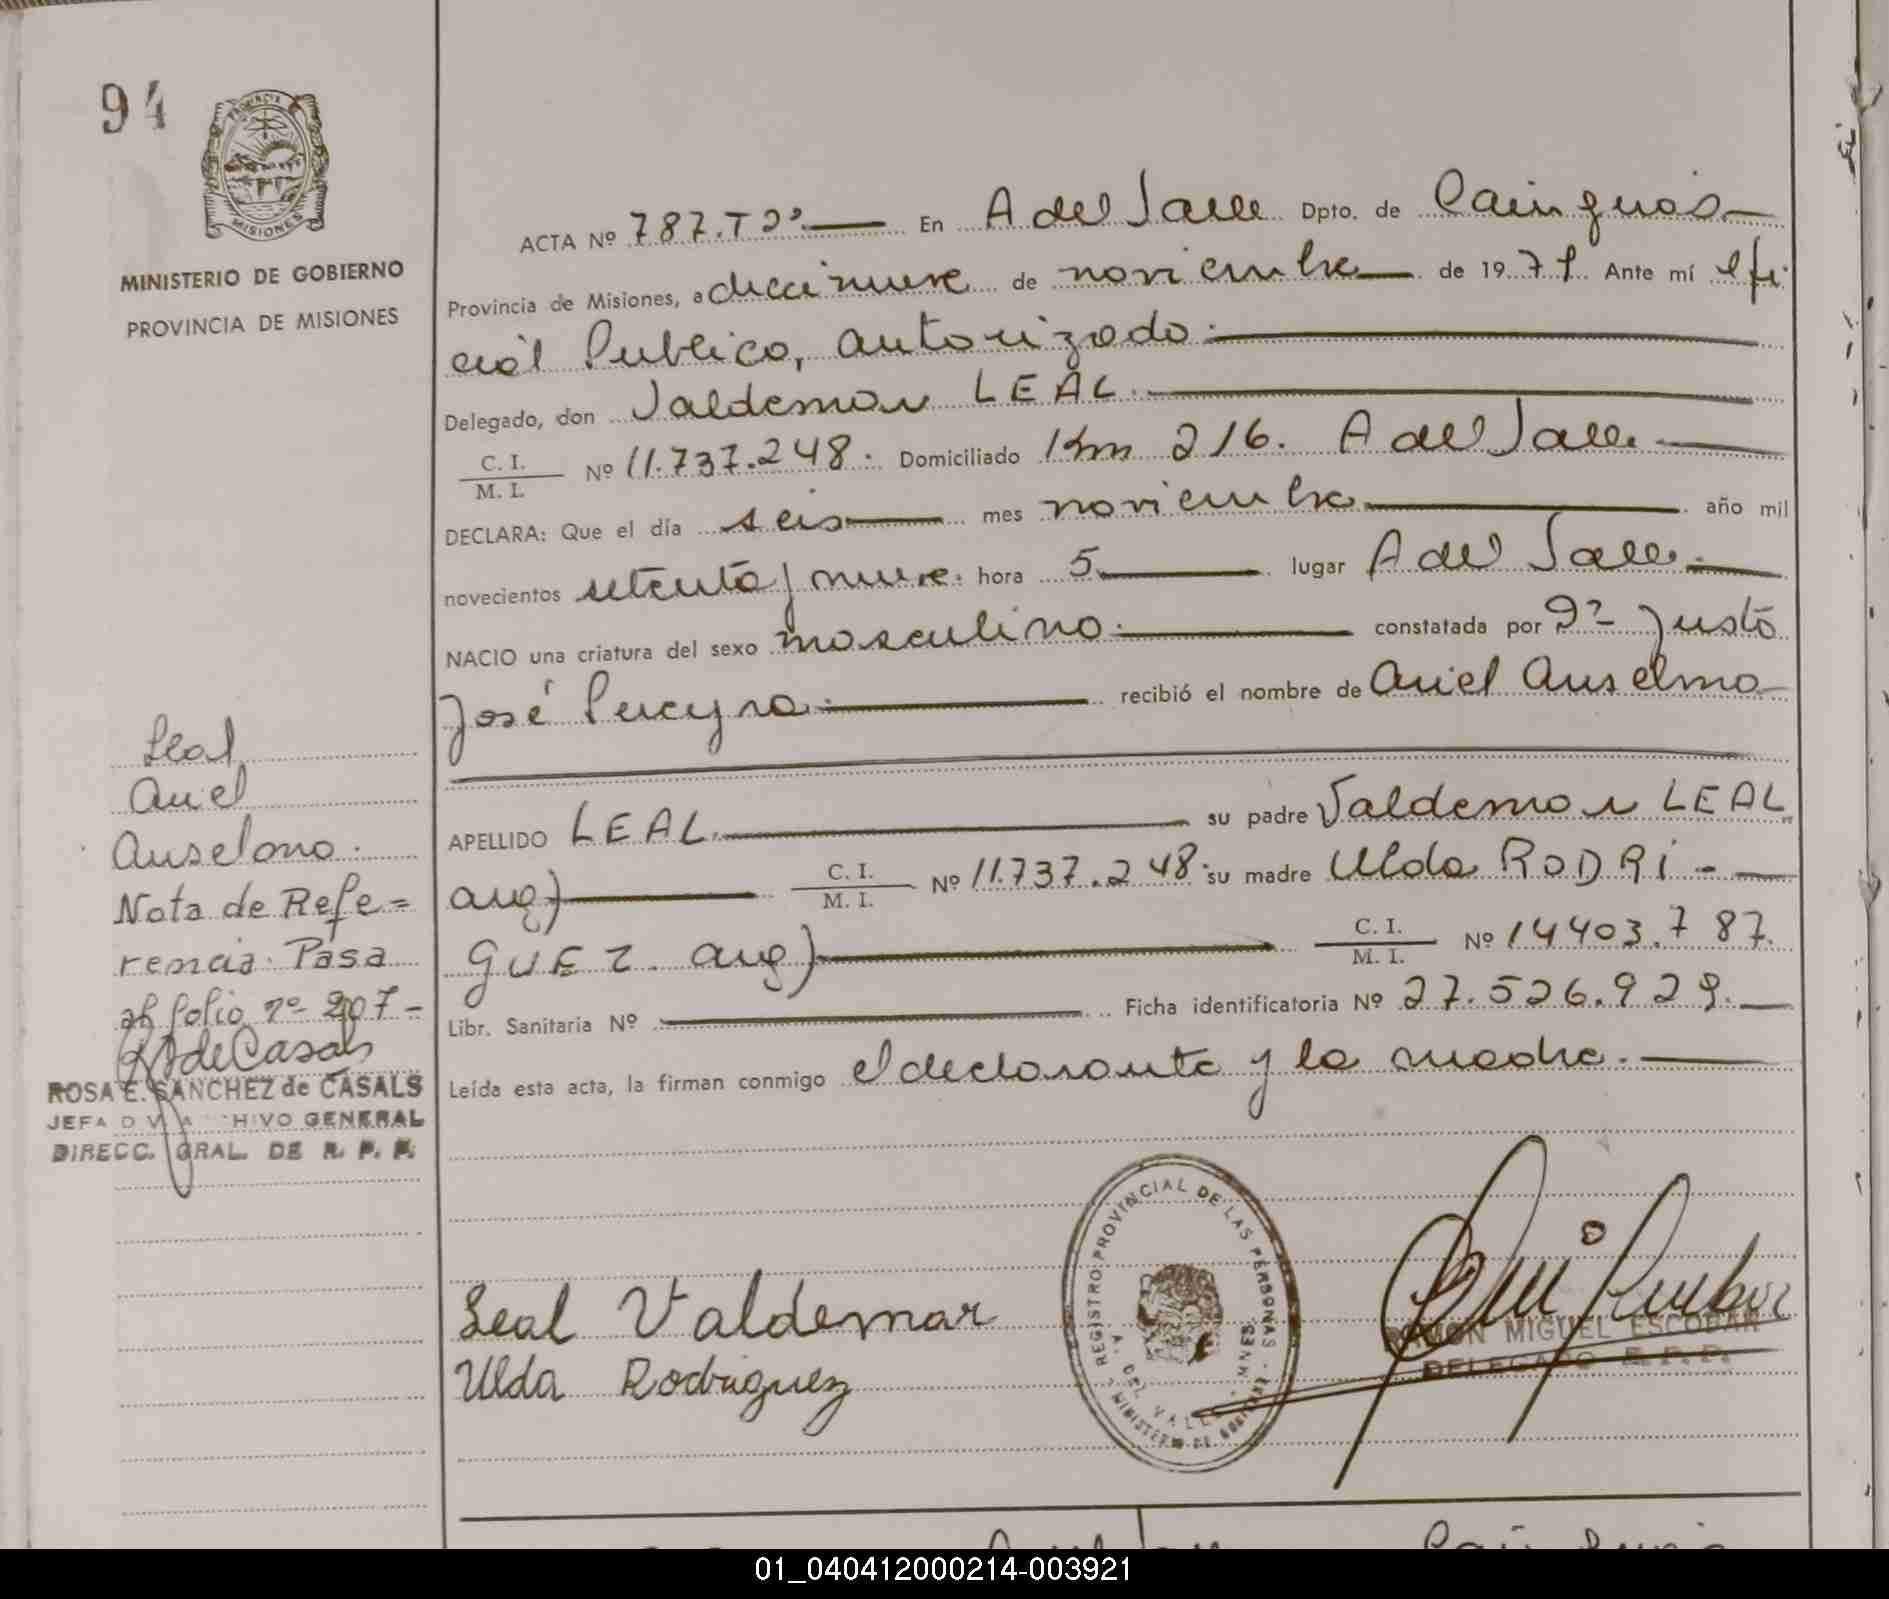 94
PROVINCIA
MISIONES
MINISTERIO DE GOBIERNO
PROVINCIA DE MISIONES
Leal
Ariel
Anselmo.
Nota de Refe=
rencia. Pasa
al folio nº 207-
RSdeCasals
ROSA E. SANCHEZ de CASALS
JEFA DIV. ARCHIVO GENERAL
DIRECC. GRAL. DE R. P. P.
ACTA Nº 787.Tº2º.— En A del Valle Dpto. de Cainguás—
Provincia de Misiones, a diecinueve de noviembre— de 1979 Ante mí Ofi
cial Publico, autorizado.—
Delegado, don Valdemar LEAL.—
C. I.
M. I. Nº 11.737.248. Domiciliado Km 216. A del Valle.—
DECLARA: Que el día seis— mes noviembre— año mil
novecientos setenta y nueve. hora 5.— lugar A del Valle.—
NACIO una criatura del sexo masculino.— constatada por Dº Justo
José Pereyra.— recibió el nombre de Ariel Anselmo—
APELLIDO LEAL.— su padre Valdemar LEAL
arg)— C. I.
M. I. Nº 11.737.248. su madre Ulda RODRI-—
GUEZ. arg)— C. I.
M. I. Nº 14403.787.
Libr. Sanitaria Nº — Ficha identificatoria Nº 27.526.929.—
Leída esta acta, la firman conmigo el declarante y la madre.—
Leal Valdemar
Ulda Rodriguez
REGISTRO PROVINCIAL DE LAS PERSONAS
A. DEL VALLE
MINISTERIO DE GOBIERNO
RAMON MIGUEL ESCOBAR
DELEGADO R. P. P.
01_040412000214-003921